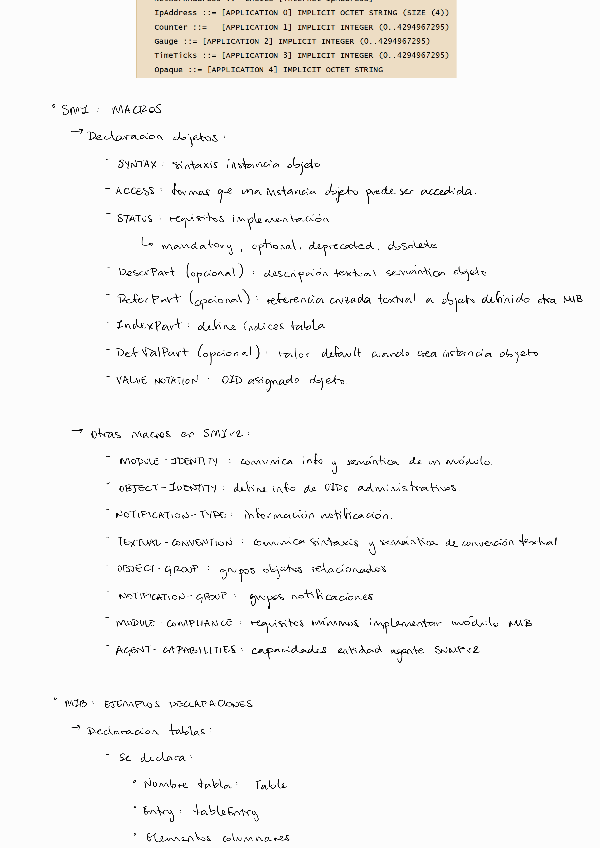 IpAddress ::= [APPLICATION 0] IMPLICIT OCTET STRING (SIZE (4))
Counter ::= [APPLICATION 1] IMPLICIT INTEGER (0..4294967295)
Gauge ::= [APPLICATION 2] IMPLICIT INTEGER (0..4294967295)
TimeTicks ::= [APPLICATION 3] IMPLICIT INTEGER (0..4294967295)
Opaque ::= [APPLICATION 4] IMPLICIT OCTET STRING
° SMI: MACROS
→ Declaración objetos:
- SYNTAX: sintaxis instancia objeto
- ACCESS: formas que una instancia objeto puede ser accedida.
- STATUS: requisitos implementación
↳ mandatory, optional, deprecated, obsolete
- DescrPart (opcional): descripción textual semántica objeto
- ReferPart (opcional): referencia cruzada textual a objeto definido otra MIB
- IndexPart: define índices tabla
- DefValPart (opcional): valor default cuando crea instancia objeto
- VALUE NOTATION: OID asignado objeto
→ Otras macros en SMIv2:
- MODULE-IDENTITY: comunica info y semántica de un módulo.
- OBJECT-IDENTITY: define info de OIDs administrativos
- NOTIFICATION-TYPE: información notificación.
- TEXTUAL-CONVENTION: comunica sintaxis y semántica de convención textual
- OBJECT-GROUP: grupos objetos relacionados
- NOTIFICATION-GROUP: grupos notificaciones
- MODULE COMPLIANCE: requisitos mínimos implementar módulo MIB
- AGENT-CAPABILITIES: capacidades entidad agente SNMPv2
° MIB: EJEMPLOS DECLARACIONES
→ Declaración tablas:
- Se declara:
° Nombre tabla: Table
° Entry: tableEntry
° Elementos columnares